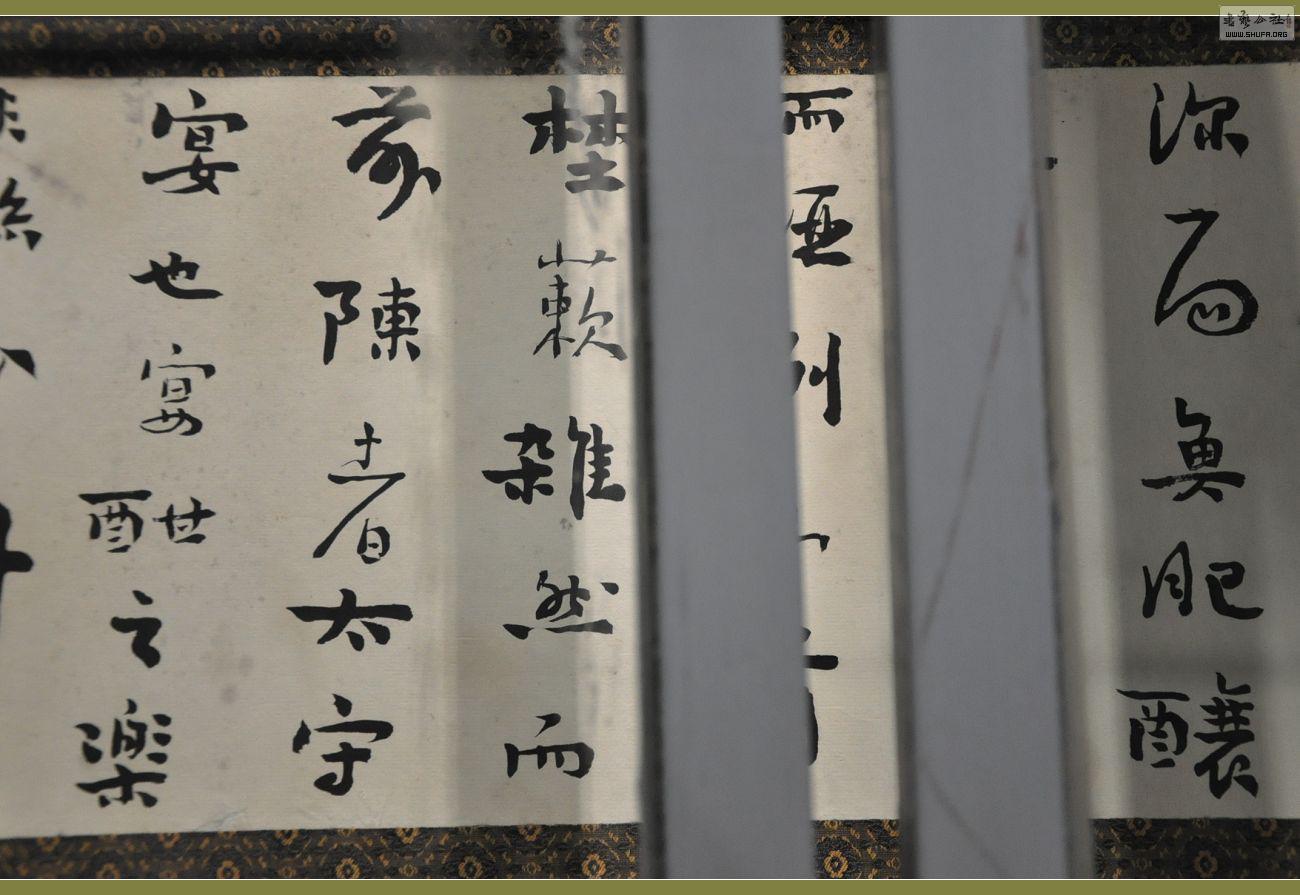 書藝公社
WWW.SHUFA.ORG
深而魚肥釀
而酒洌
埜蔌雜然而
前陳者太守
宴也宴酣之樂